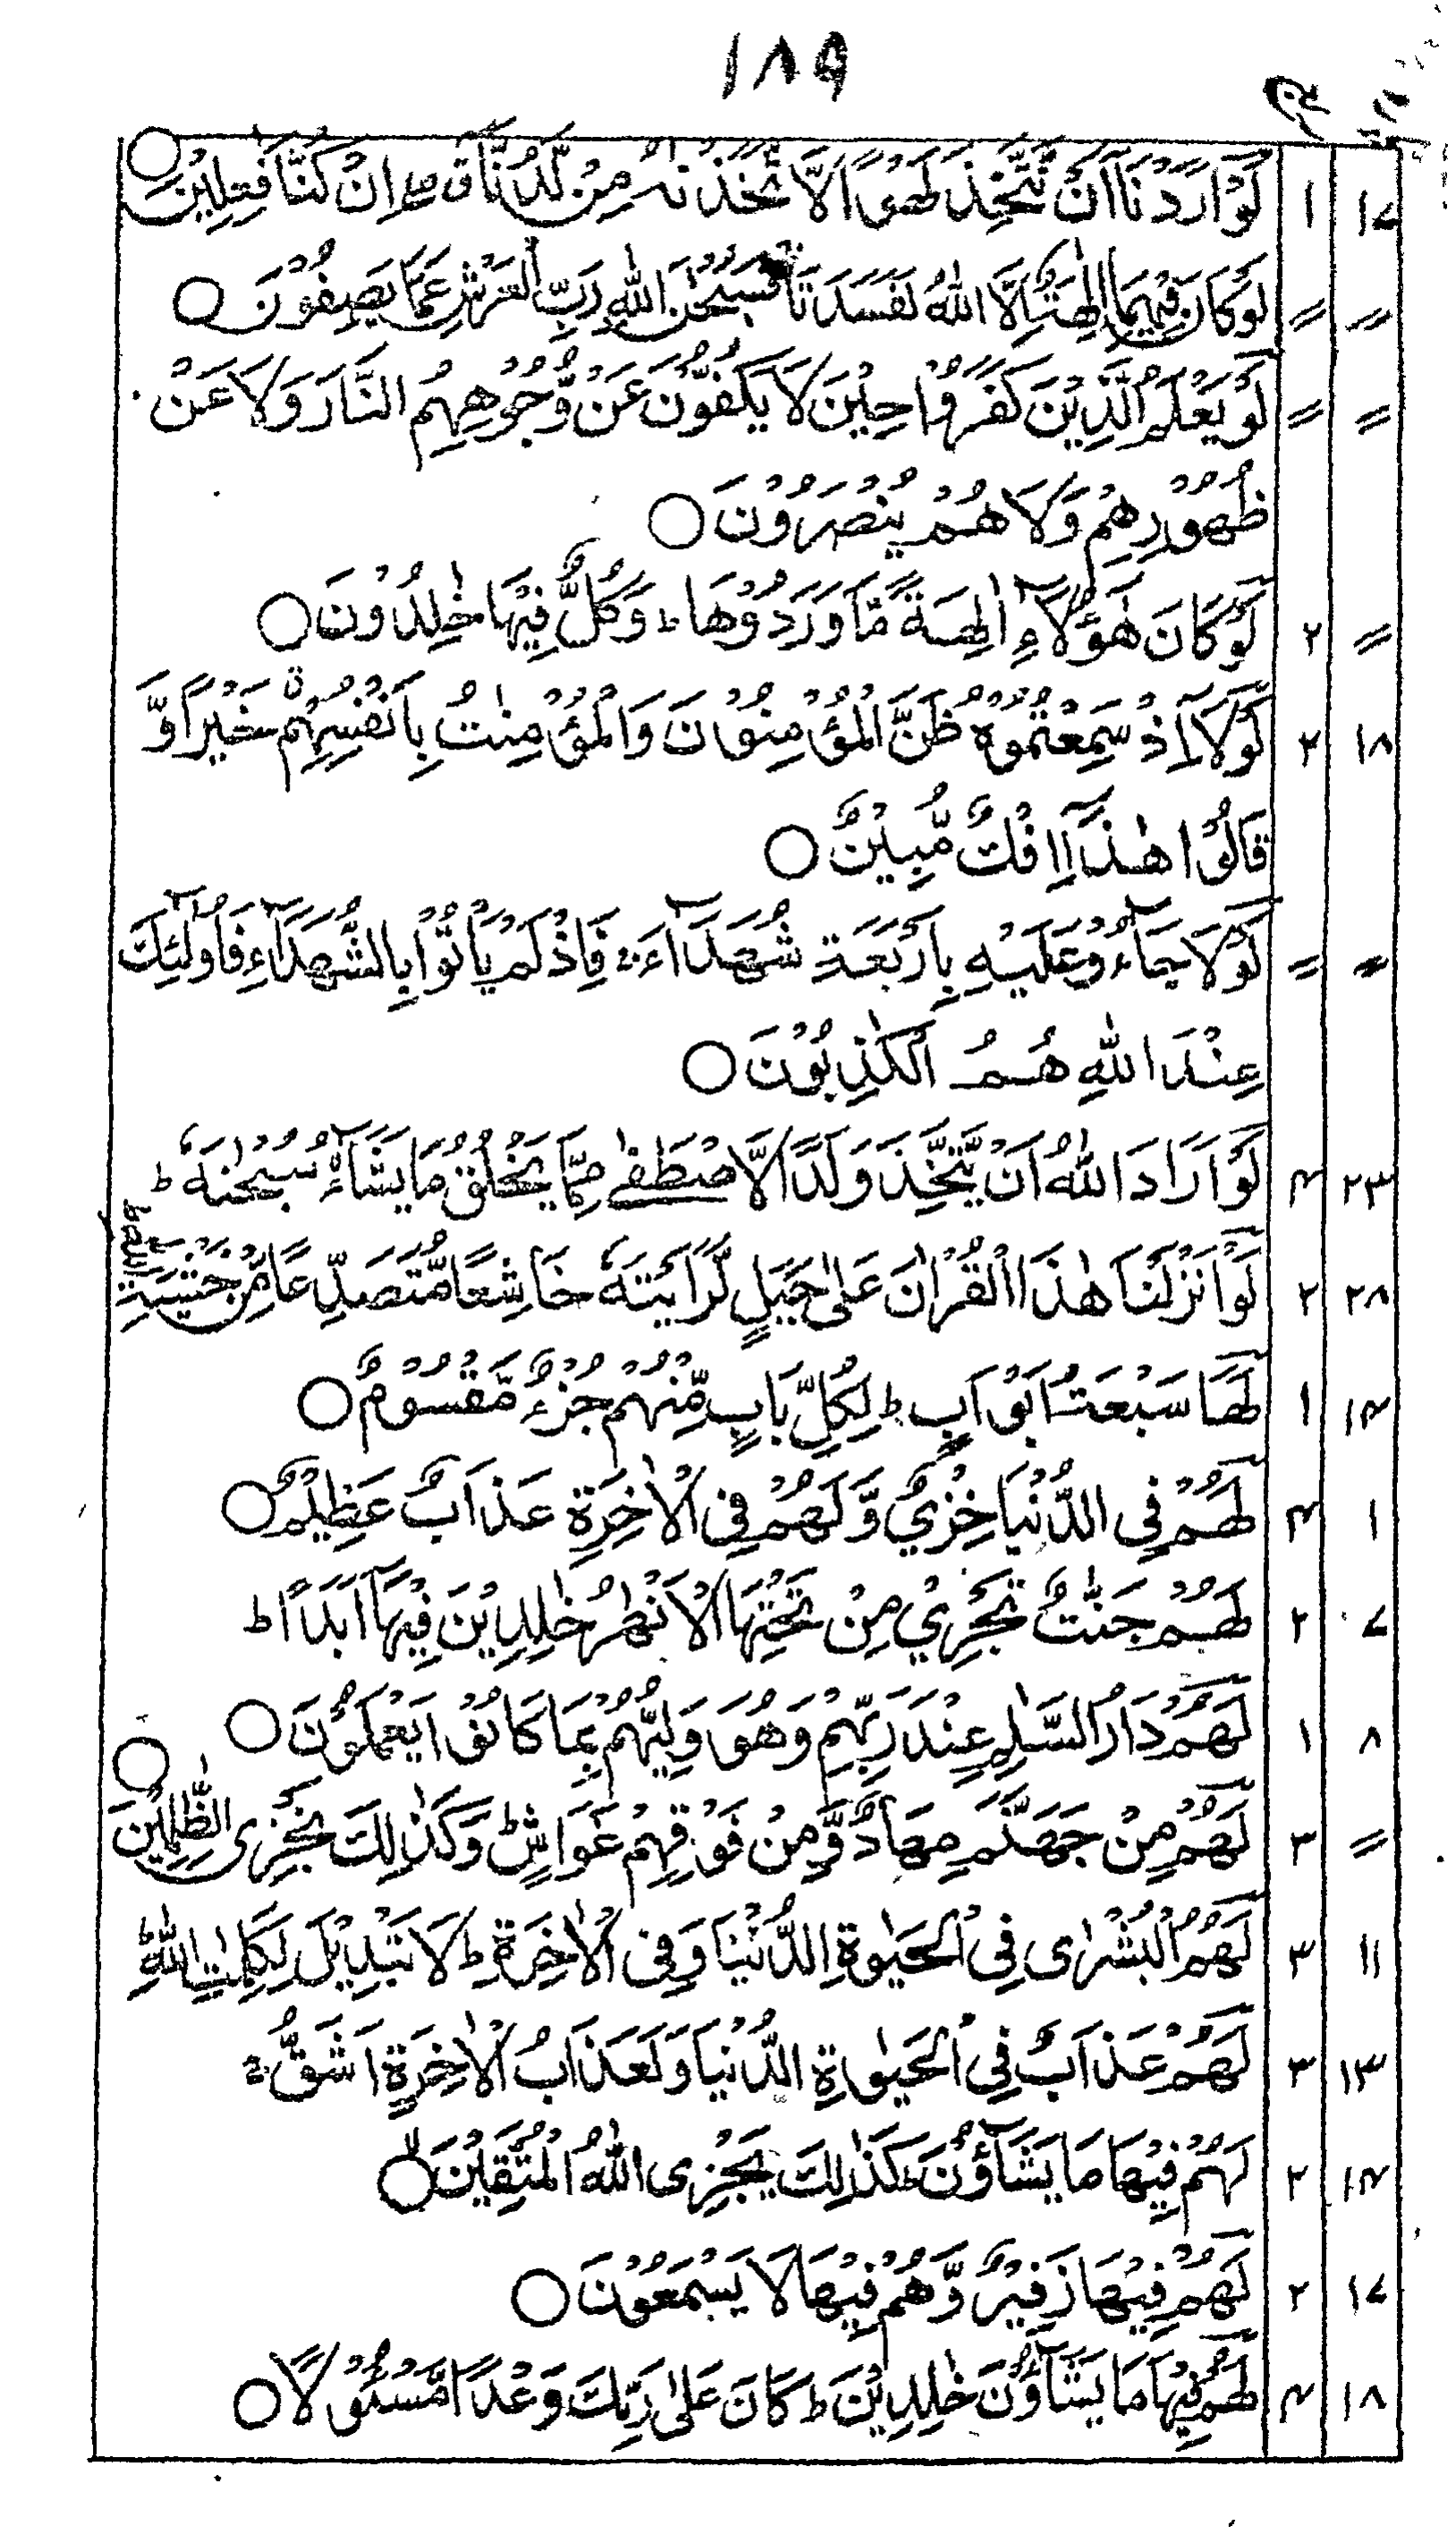 ۱۸۹
۱۷ ۱ لَوْ اَرَدْنَآ اَنْ نَّتَّخِذَ لَهْوًا لَّا تَّخَذْنٰهُ مِنْ لَّدُنَّآ ق اِنْ كُنَّا فٰعِلِيْنَ ○
〃 〃 لَوْ كَانَ فِيْهِمَآ اٰلِهَةٌ اِلَّا اللّٰهُ لَفَسَدَتَا فَسُبْحٰنَ اللّٰهِ رَبِّ الْعَرْشِ عَمَّا يَصِفُوْنَ ○
〃 〃 لَوْ يَعْلَمُ الَّذِيْنَ كَفَرُوْا حِيْنَ لَا يَكُفُّوْنَ عَنْ وُّجُوْهِهِمُ النَّارَ وَلَا عَنْ
ظُهُوْرِهِمْ وَلَا هُمْ يُنْصَرُوْنَ ○
〃 ۲ لَوْ كَانَ هٰٓؤُلَآءِ اٰلِهَةً مَّا وَرَدُوْهَا ط وَكُلٌّ فِيْهَا خٰلِدُوْنَ ○
۱۸ ۲ لَوْلَآ اِذْ سَمِعْتُمُوْهُ ظَنَّ الْمُؤْمِنُوْنَ وَالْمُؤْمِنٰتُ بِاَنْفُسِهِمْ خَيْرًا وَّ
قَالُوْا هٰذَآ اِفْكٌ مُّبِيْنٌ ○
〃 〃 لَوْلَا جَآءُوْ عَلَيْهِ بِاَرْبَعَةِ شُهَدَآءَ ج فَاِذْ لَمْ يَاْتُوْا بِالشُّهَدَآءِ فَاُولٰٓئِكَ
عِنْدَ اللّٰهِ هُمُ الْكٰذِبُوْنَ ○
۲۳ ۴ لَوْ اَرَادَ اللّٰهُ اَنْ يَّتَّخِذَ وَلَدًا لَّا صْطَفٰى مِمَّا يَخْلُقُ مَا يَشَآءُ سُبْحٰنَهٗ ط
۲۸ ۲ لَوْ اَنْزَلْنَا هٰذَا الْقُرْاٰنَ عَلٰى جَبَلٍ لَّرَاَيْتَهٗ خَاشِعًا مُّتَصَدِّعًا مِّنْ خَشْيَةِ اللّٰهِ ط
۱۴ ۱ لَهَا سَبْعَةُ اَبْوَابٍ ط لِكُلِّ بَابٍ مِّنْهُمْ جُزْءٌ مَّقْسُوْمٌ ○
۱ ۴ لَهُمْ فِى الدُّنْيَا خِزْيٌ وَّلَهُمْ فِى الْاٰخِرَةِ عَذَابٌ عَظِيْمٌ ○
۷ ۲ لَهُمْ جَنّٰتٌ تَجْرِيْ مِنْ تَحْتِهَا الْاَنْهٰرُ خٰلِدِيْنَ فِيْهَآ اَبَدًا ط
۸ ۱ لَهُمْ دَارُ السَّلٰمِ عِنْدَ رَبِّهِمْ وَهُوَ وَلِيُّهُمْ بِمَا كَانُوْا يَعْمَلُوْنَ ○
〃 ۳ لَهُمْ مِّنْ جَهَنَّمَ مِهَادٌ وَّمِنْ فَوْقِهِمْ غَوَاشٍ ط وَكَذٰلِكَ نَجْزِى الظّٰلِمِيْنَ ○
۱۱ ۳ لَهُمُ الْبُشْرٰى فِى الْحَيٰوةِ الدُّنْيَا وَفِى الْاٰخِرَةِ ط لَا تَبْدِيْلَ لِكَلِمٰتِ اللّٰهِ ط
۱۳ ۳ لَهُمْ عَذَابٌ فِى الْحَيٰوةِ الدُّنْيَا وَلَعَذَابُ الْاٰخِرَةِ اَشَقُّ ج
۱۴ ۲ لَهُمْ فِيْهَا مَا يَشَآؤُنَ ط كَذٰلِكَ يَجْزِى اللّٰهُ الْمُتَّقِيْنَ ○
۱۷ ۲ لَهُمْ فِيْهَا زَفِيْرٌ وَّهُمْ فِيْهَا لَا يَسْمَعُوْنَ ○
۱۸ ۴ لَهُمْ فِيْهَا مَا يَشَآؤُنَ خٰلِدِيْنَ ط كَانَ عَلٰى رَبِّكَ وَعْدًا مَّسْئُوْلًا ○